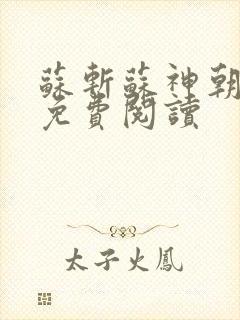 蘇斬蘇神朝
免費閱讀
太子火鳳